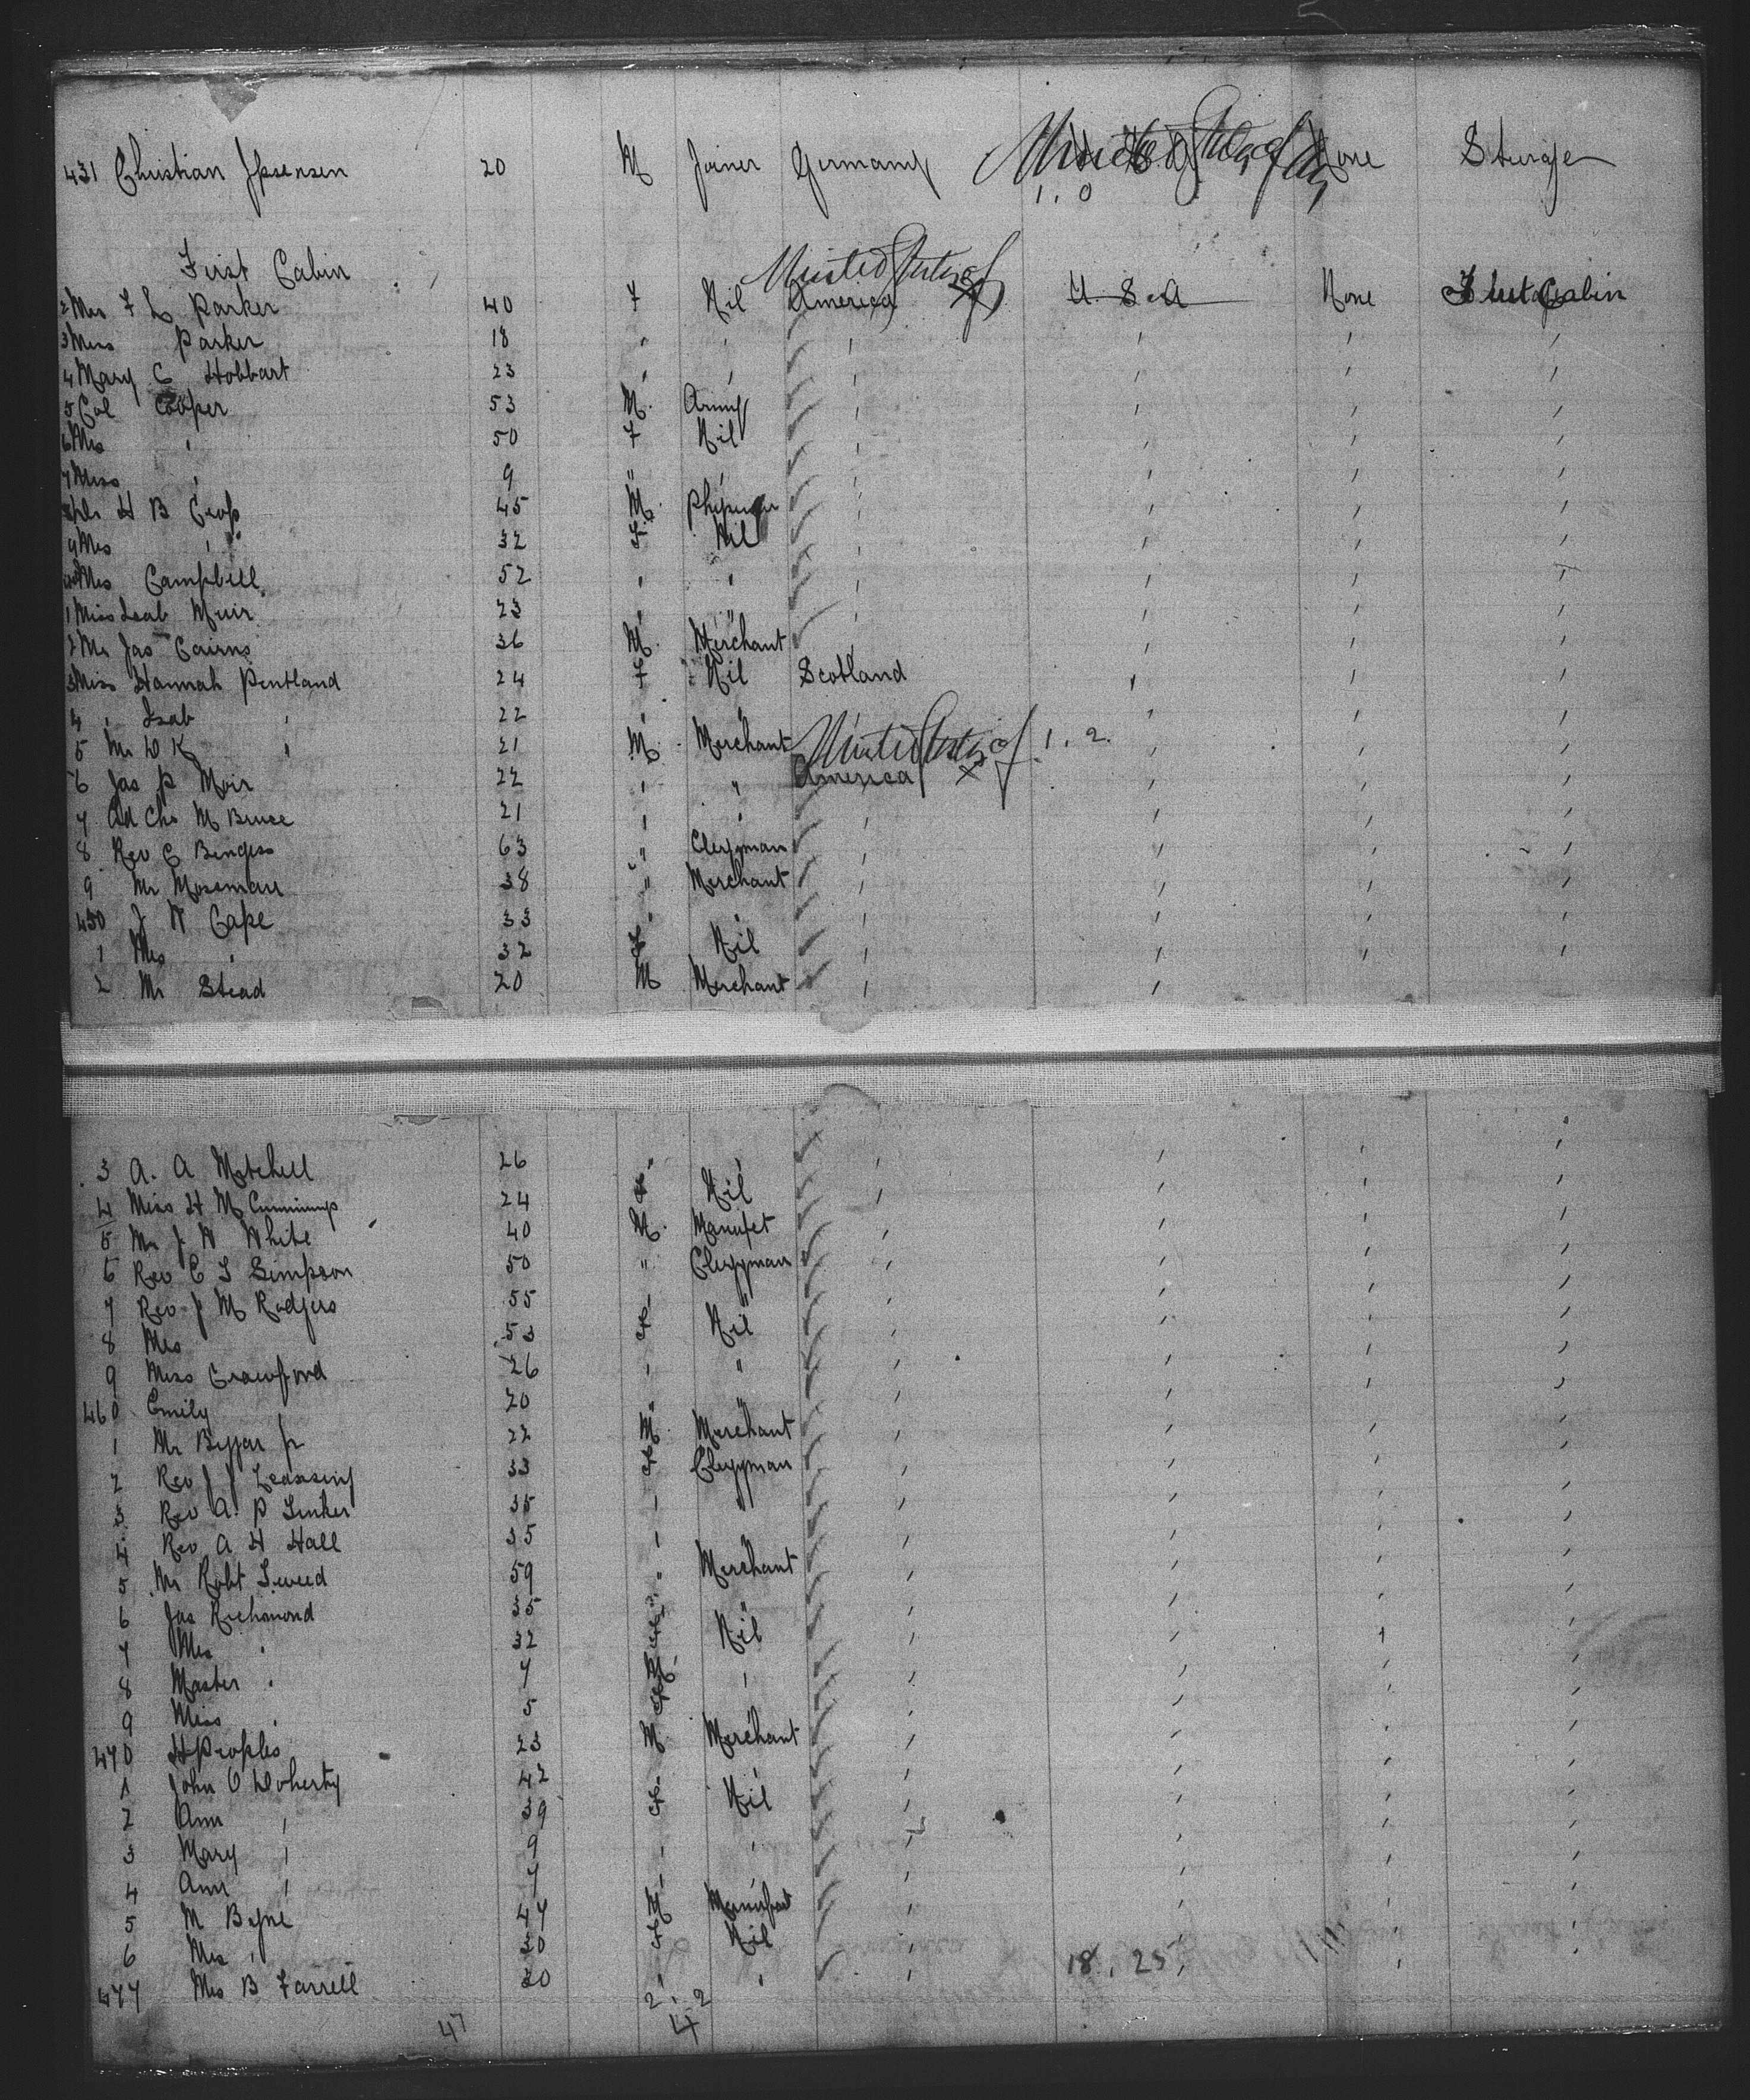 431 Christian Jpsensen 20 M Joiner Germany United States of None Steerage
1. 0
First Cabin United States of
2 Mrs F L Parker 40 F Nil America U. S. A None First Cabin
3 Miss Parker 18 " "
4 Mary C Hobbart 23 " "
5 Col Cooper 53 M. Army
6 Mrs " 50 F Nil
7 Miss " 9 " "
8 Dr H B 45 M.
9 Mrs " 32 F Nil
440 Mrs Campbell 52 " "
1 Miss Isab Muir 23 " "
2 Mr Jas Cairns 36 M. Merchant
3 Miss Hannah Pentland 24 F Nil Scotland
4 " Isab " 22 " "
5 Mr W K " 21 M. Merchant United States of 1. 2
6 Jas P Muir 22 " " America
7 M Bruce 21 " "
8 Rev C 63 " Clergyman
9 Mr Mossman 38 " Merchant
450 J W Cape 33 " "
1 Mrs " 32 F Nil
2 Mr Stead 20 M Merchant
3 A. A Mitchell 26 " "
4 Miss H M Cummings 24 F Nil
5 Mr J W White 40 M. Manufct
6 Rev C S Simpson 50 " Clergyman
7 Rev J M Rodgers 55 " "
8 Mrs 53 F Nil
9 Miss Crawford 26 " "
460 Emily 20 " "
1 Mr Jr 22 M. Merchant
2 Rev J J 33 F Clergyman
3 Rev A. P 35 " "
4 Rev A H Hall 35 " "
5 Mr Robt Tweed 59 " Merchant
6 Jas Richmond 35 " "
7 Mrs " 32 F Nil
8 Master " 7 M. "
9 Miss " 5 F
470 H Peoples 23 M. Merchant
1 John O Doherty 42 " "
2 Ann " 39 F Nil
3 Mary " 9 " "
4 Ann " 7 " "
5 M Byrne 47 M
6 Mrs " 30 F Nil
477 Mrs B Farrell 30 " " 18. 25
2. 2
47 4